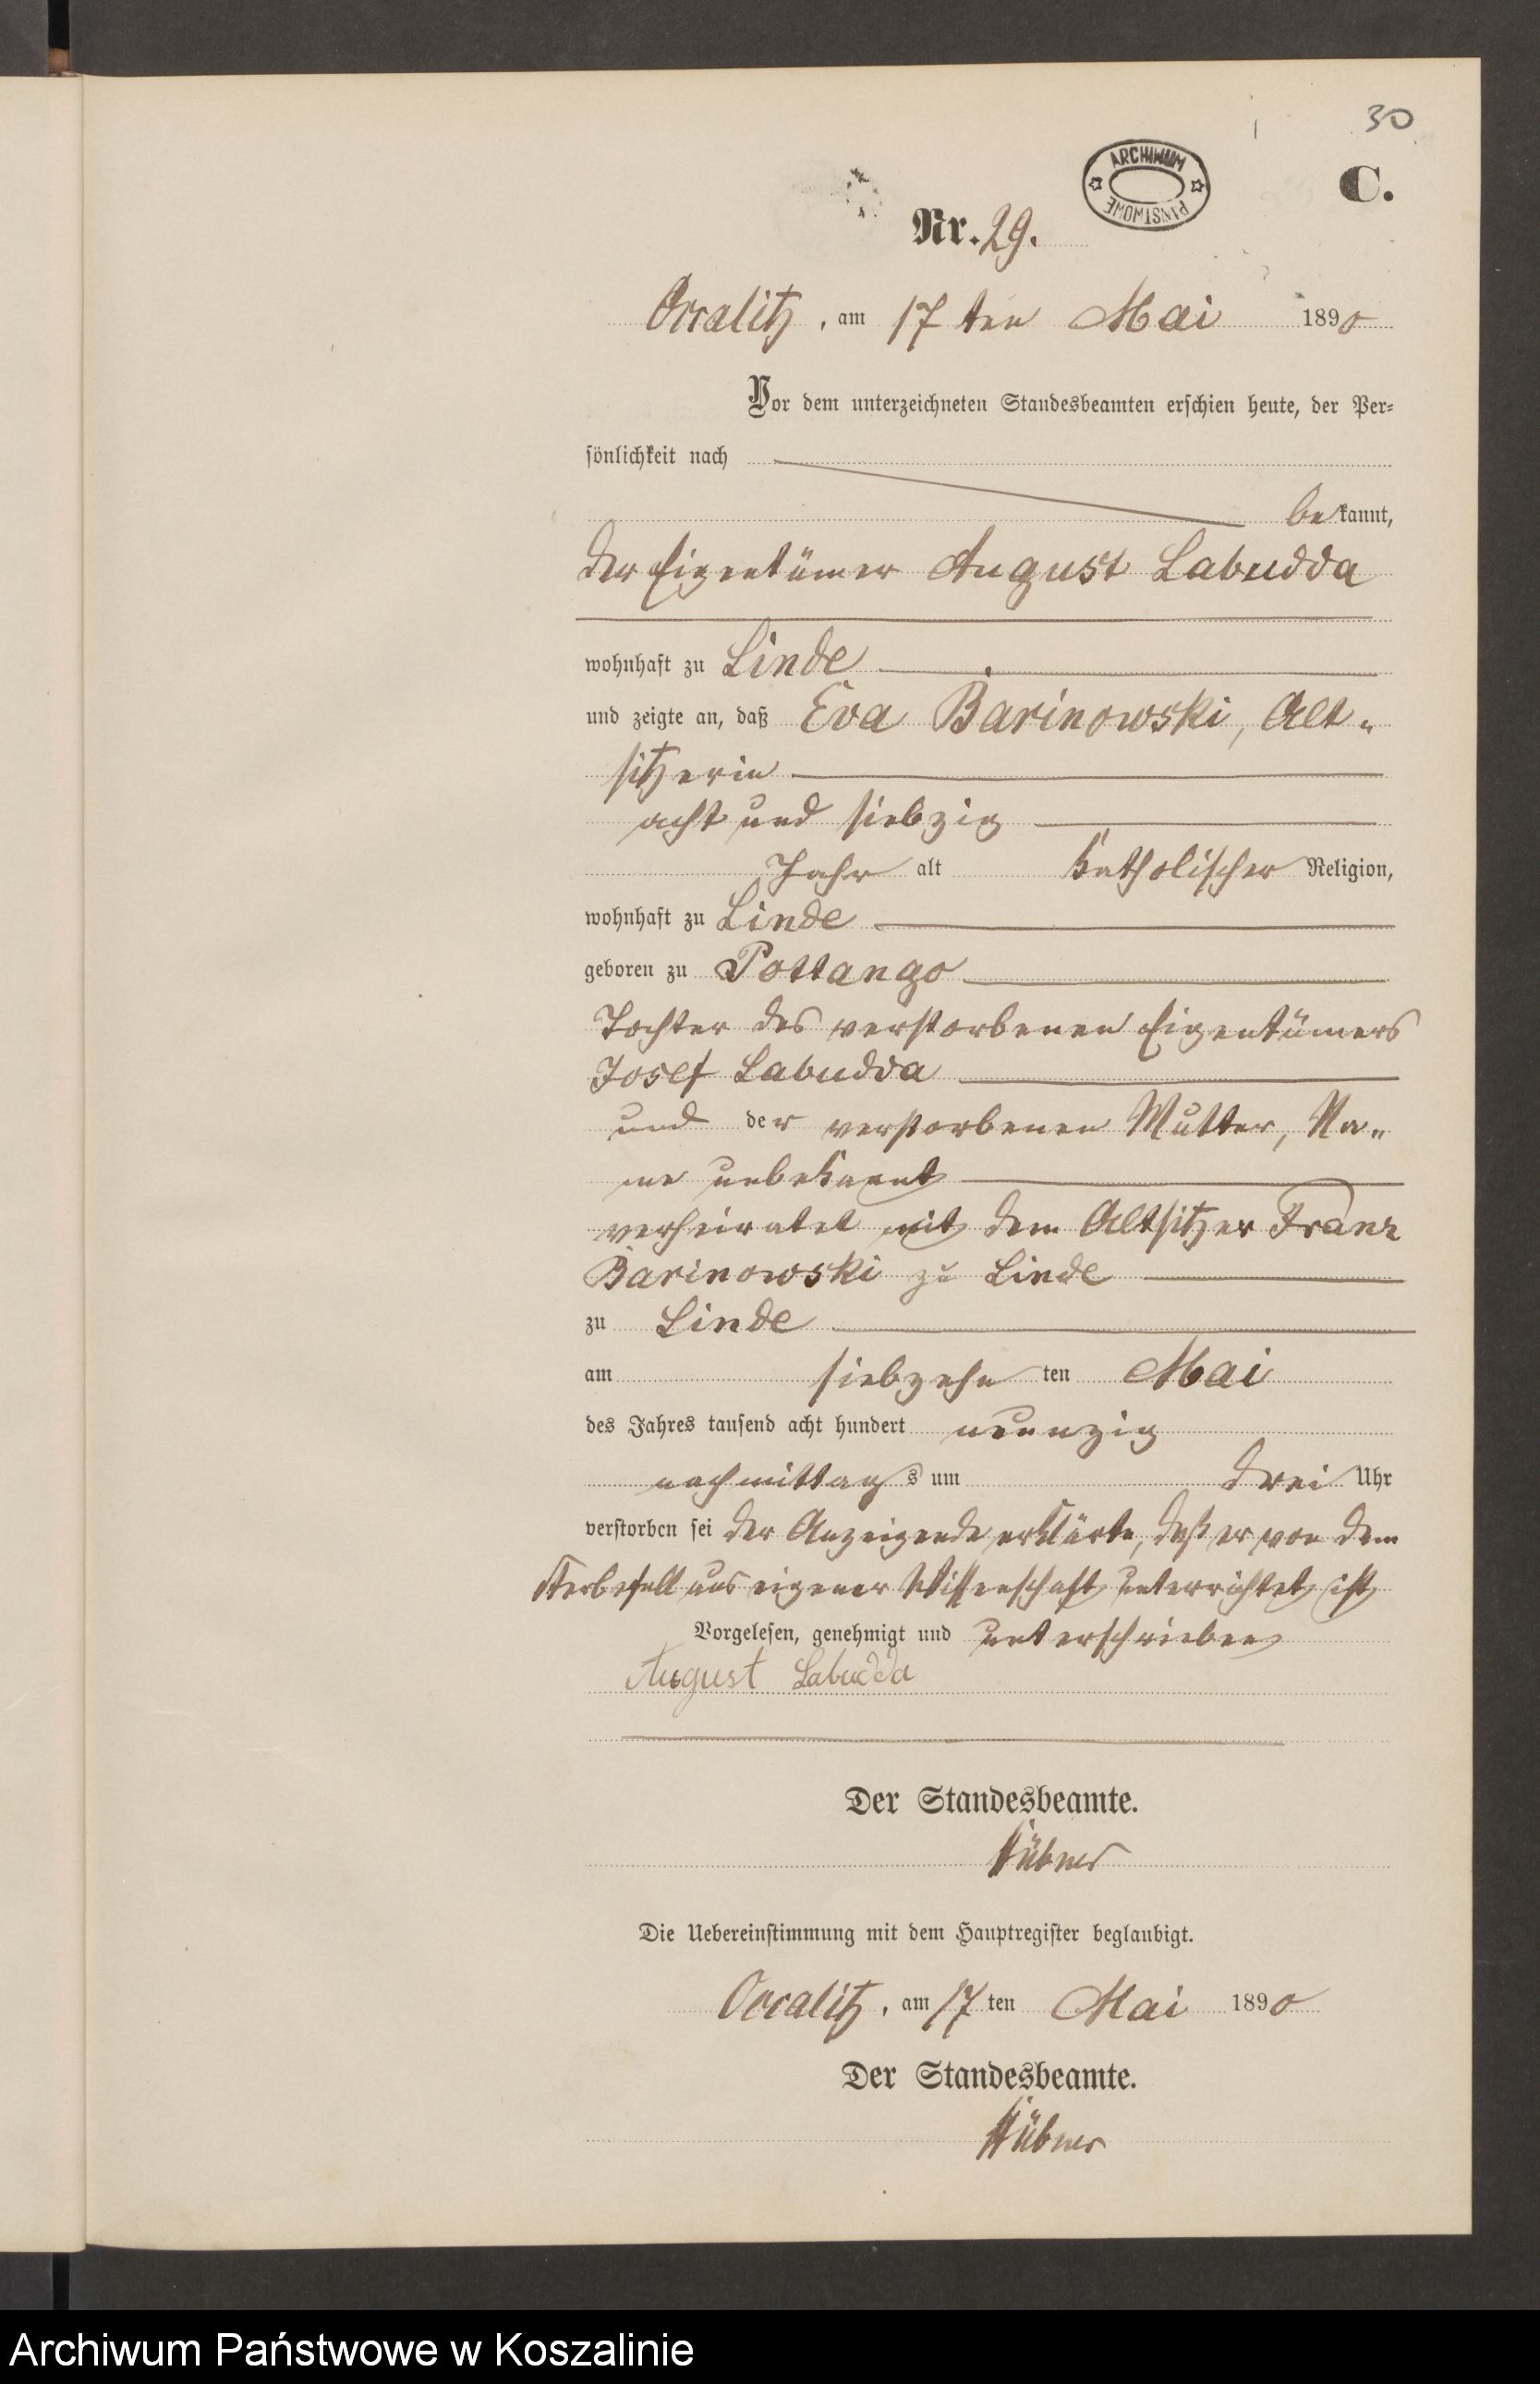 30
ARCHIWUM PAŃSTWOWE
C.
Nr. 29.
Occalitz, am 17 ten Mai 1890
Vor dem unterzeichneten Standesbeamten erschien heute, der Per-
sönlichkeit nach
bekannt,
der Eigentümer August Labudda
wohnhaft zu Linde
und zeigte an, daß Eva Barinowski, Alt-
sitzerin
acht und siebzig
Jahr alt katholischer Religion,
wohnhaft zu Linde
geboren zu Pottango
Tochter des verstorbenen Eigentümers
Josef Labudda
und der verstorbenen Mutter, Na-
me unbekannt
verheiratet mit dem Altsitzer Franz
Barinowski zu Linde
zu Linde
am siebzehn ten Mai
des Jahres tausend acht hundert neunzig
nachmittags um drei Uhr
verstorben sei der Anzeigende erklärte, daß er von dem
Sterbefall aus eigener Wissenschaft unterrichtet ist
Vorgelesen, genehmigt und unterschrieben
August Labudda
Der Standesbeamte.
Hübner
Die Uebereinstimmung mit dem Hauptregister beglaubigt.
Occalitz, am 17 ten Mai 1890
Der Standesbeamte.
Hübner
Archiwum Państwowe w Koszalinie